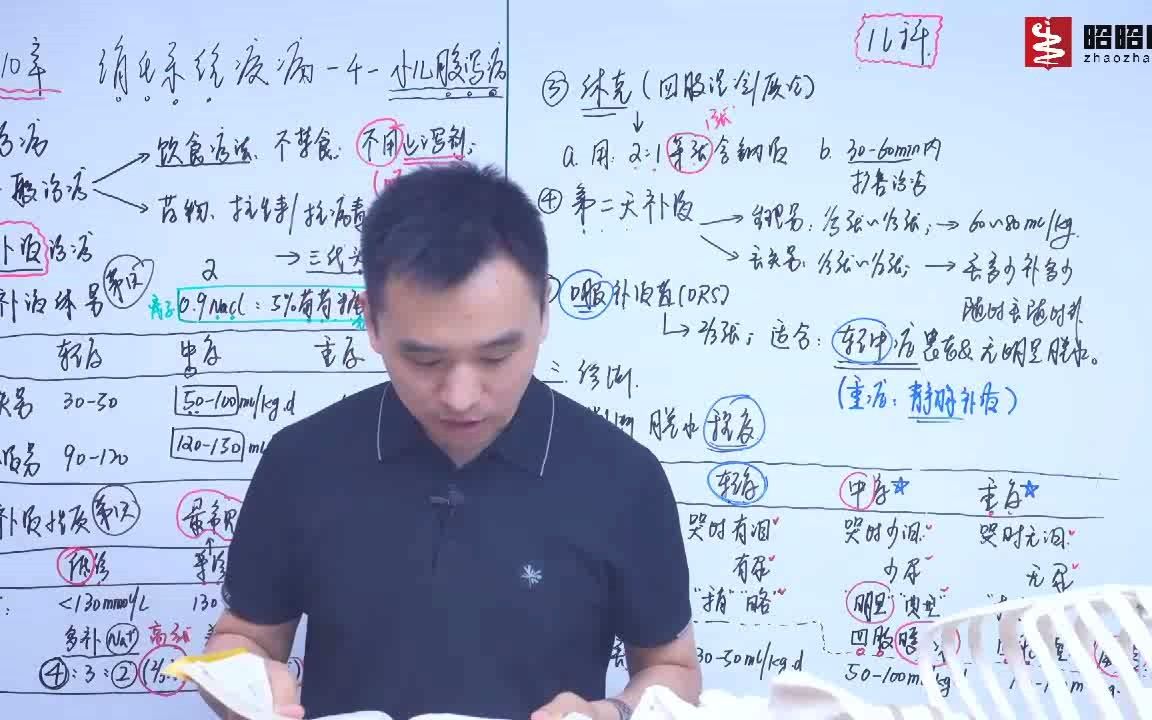 10章 消化系统疾病-4-小儿腹泻病
一般治疗
饮食疗法: 不禁食; 不用止泻剂;
药物: 抗生素/抗病毒
补液治疗
→三代头
补液体量 第1天
2
0.9NaCl : 5%葡萄糖
轻度 中度 重度
30-50 50-100ml/kg.d
90-120 120-150ml
补液性质 第1天
最常见
低渗 等渗
<130mmol/L 130
多补 Na⁺ 高张
④:3:②
儿科
昭昭
zhaozha
③ 休克(四肢湿冷/厥冷)
1张
a. 用: 2:1 等张含钠液 b. 30-60min内
扩容治疗
④ 第二天补液
生理量: 1/5张~1/3张; → 60~80ml/kg.
丢失量: 1/3张~1/2张; → 丢多少补多少
随时丢随时补
口服补液盐(ORS)
→ 2/3张; 适合: 轻中度患者& 无明显脱水。
(重度: 静脉补液)
三. 诊断.
脱水程度
轻度 中度☆ 重度☆
哭时有泪 哭时少泪 哭时无泪
有尿 少尿 无尿
"稍有" "略" "明显" "典型"
四肢
30-50ml/kg.d 50-100m kg